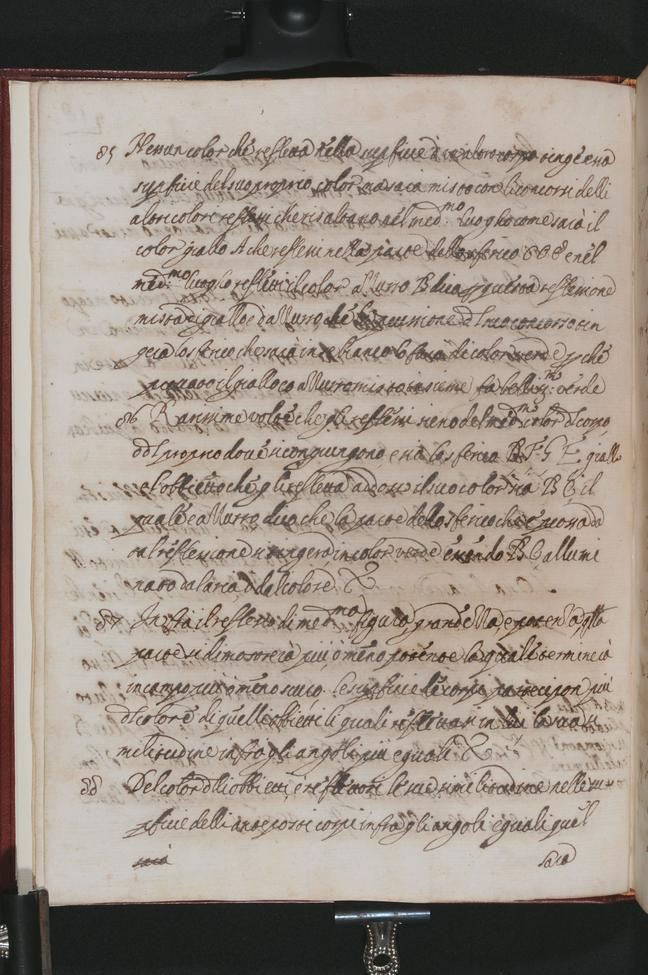 85 Nessun color che refletta nella superficie d'un altro corpo tinge essa
superficie del suo proprio color ma sara misto con li concorsi delli
altri colori reflessi che risaltano nel med.mo luogho come sarà il
color giallo A che refletti nella parte dello sferico COE e nel
med.mo luogho refletti il color azzurro B dico questa reflessione
mista di giallo e d'azzurro che la percussione del suo concorso tin
gera lo sferico che s'era in se bianco lo fara di color verde perche
provato il giallo e azzurro misto insieme fa belliss.mo verde
86 Rarissime volte che li reflessi sieno del med.mo color del corpo
o del proprio dove si congiungono e sia lo sferico D F G E giallo
e l'obbietto che gli reflette addosso il suo colore sia B C il
quale è azzurro dico che la parte dello sferico che è percossa da
tal reflessione si tingerà in color verde essendo B C allumi
nato da l'aria o del sole. &
87 Infra il reflesso di med.ma figura, grandezza, e potentia q.lla
parte si dimostrerà più o meno potente la quale terminerà
in campo più o meno scuro. le superficie de corpi partecipon più
del colore di quelli obbietti li quali reflettano in lui la sua si
militudine infra gli angoli più equali &
88 Del color delli obbietti che reflettano le sue similitudine nelle su
perficie delli anteposti corpi infra gli angoli equali quel
sara